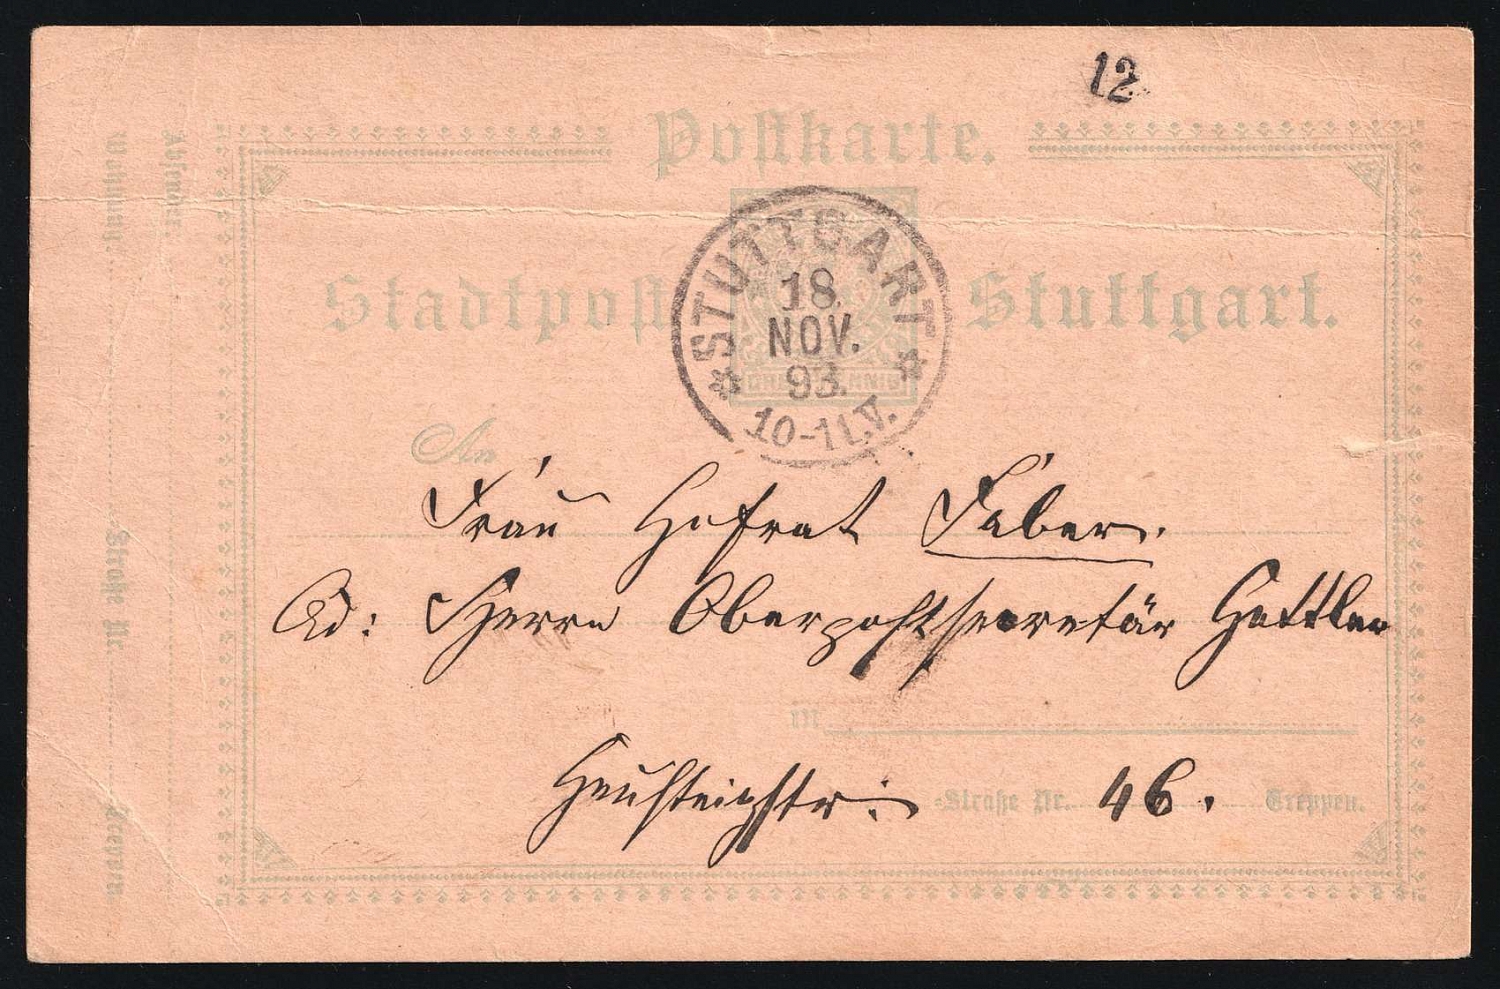 12
Postkarte.
Stadtpost Stuttgart.
STUTTGART
18.
NOV.
93.
10-11.V.
DREI PFENNIG
An
Frau Hofrat Faber.
Ad: Herrn Oberpostsecretär Hettler
in
Heusteigstr: -Straße Nr. 46. Treppen.
Absender:
Wohnung: Straße Nr. Treppen